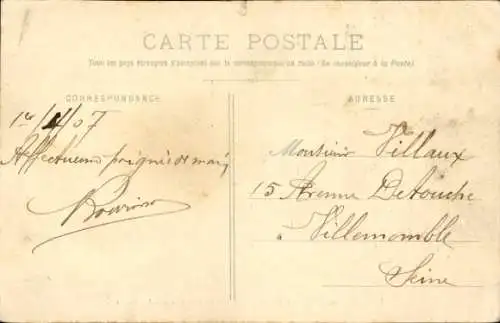 CARTE POSTALE
Tous les pays étrangers n'acceptent pas la correspondance au recto (Se renseigner à la Poste)
CORRESPONDANCE
ADRESSE
14/4/07
Affectueuse poignée de main
Monsieur Villaux
15 Avenue Detouche
à Villemomble
Seine